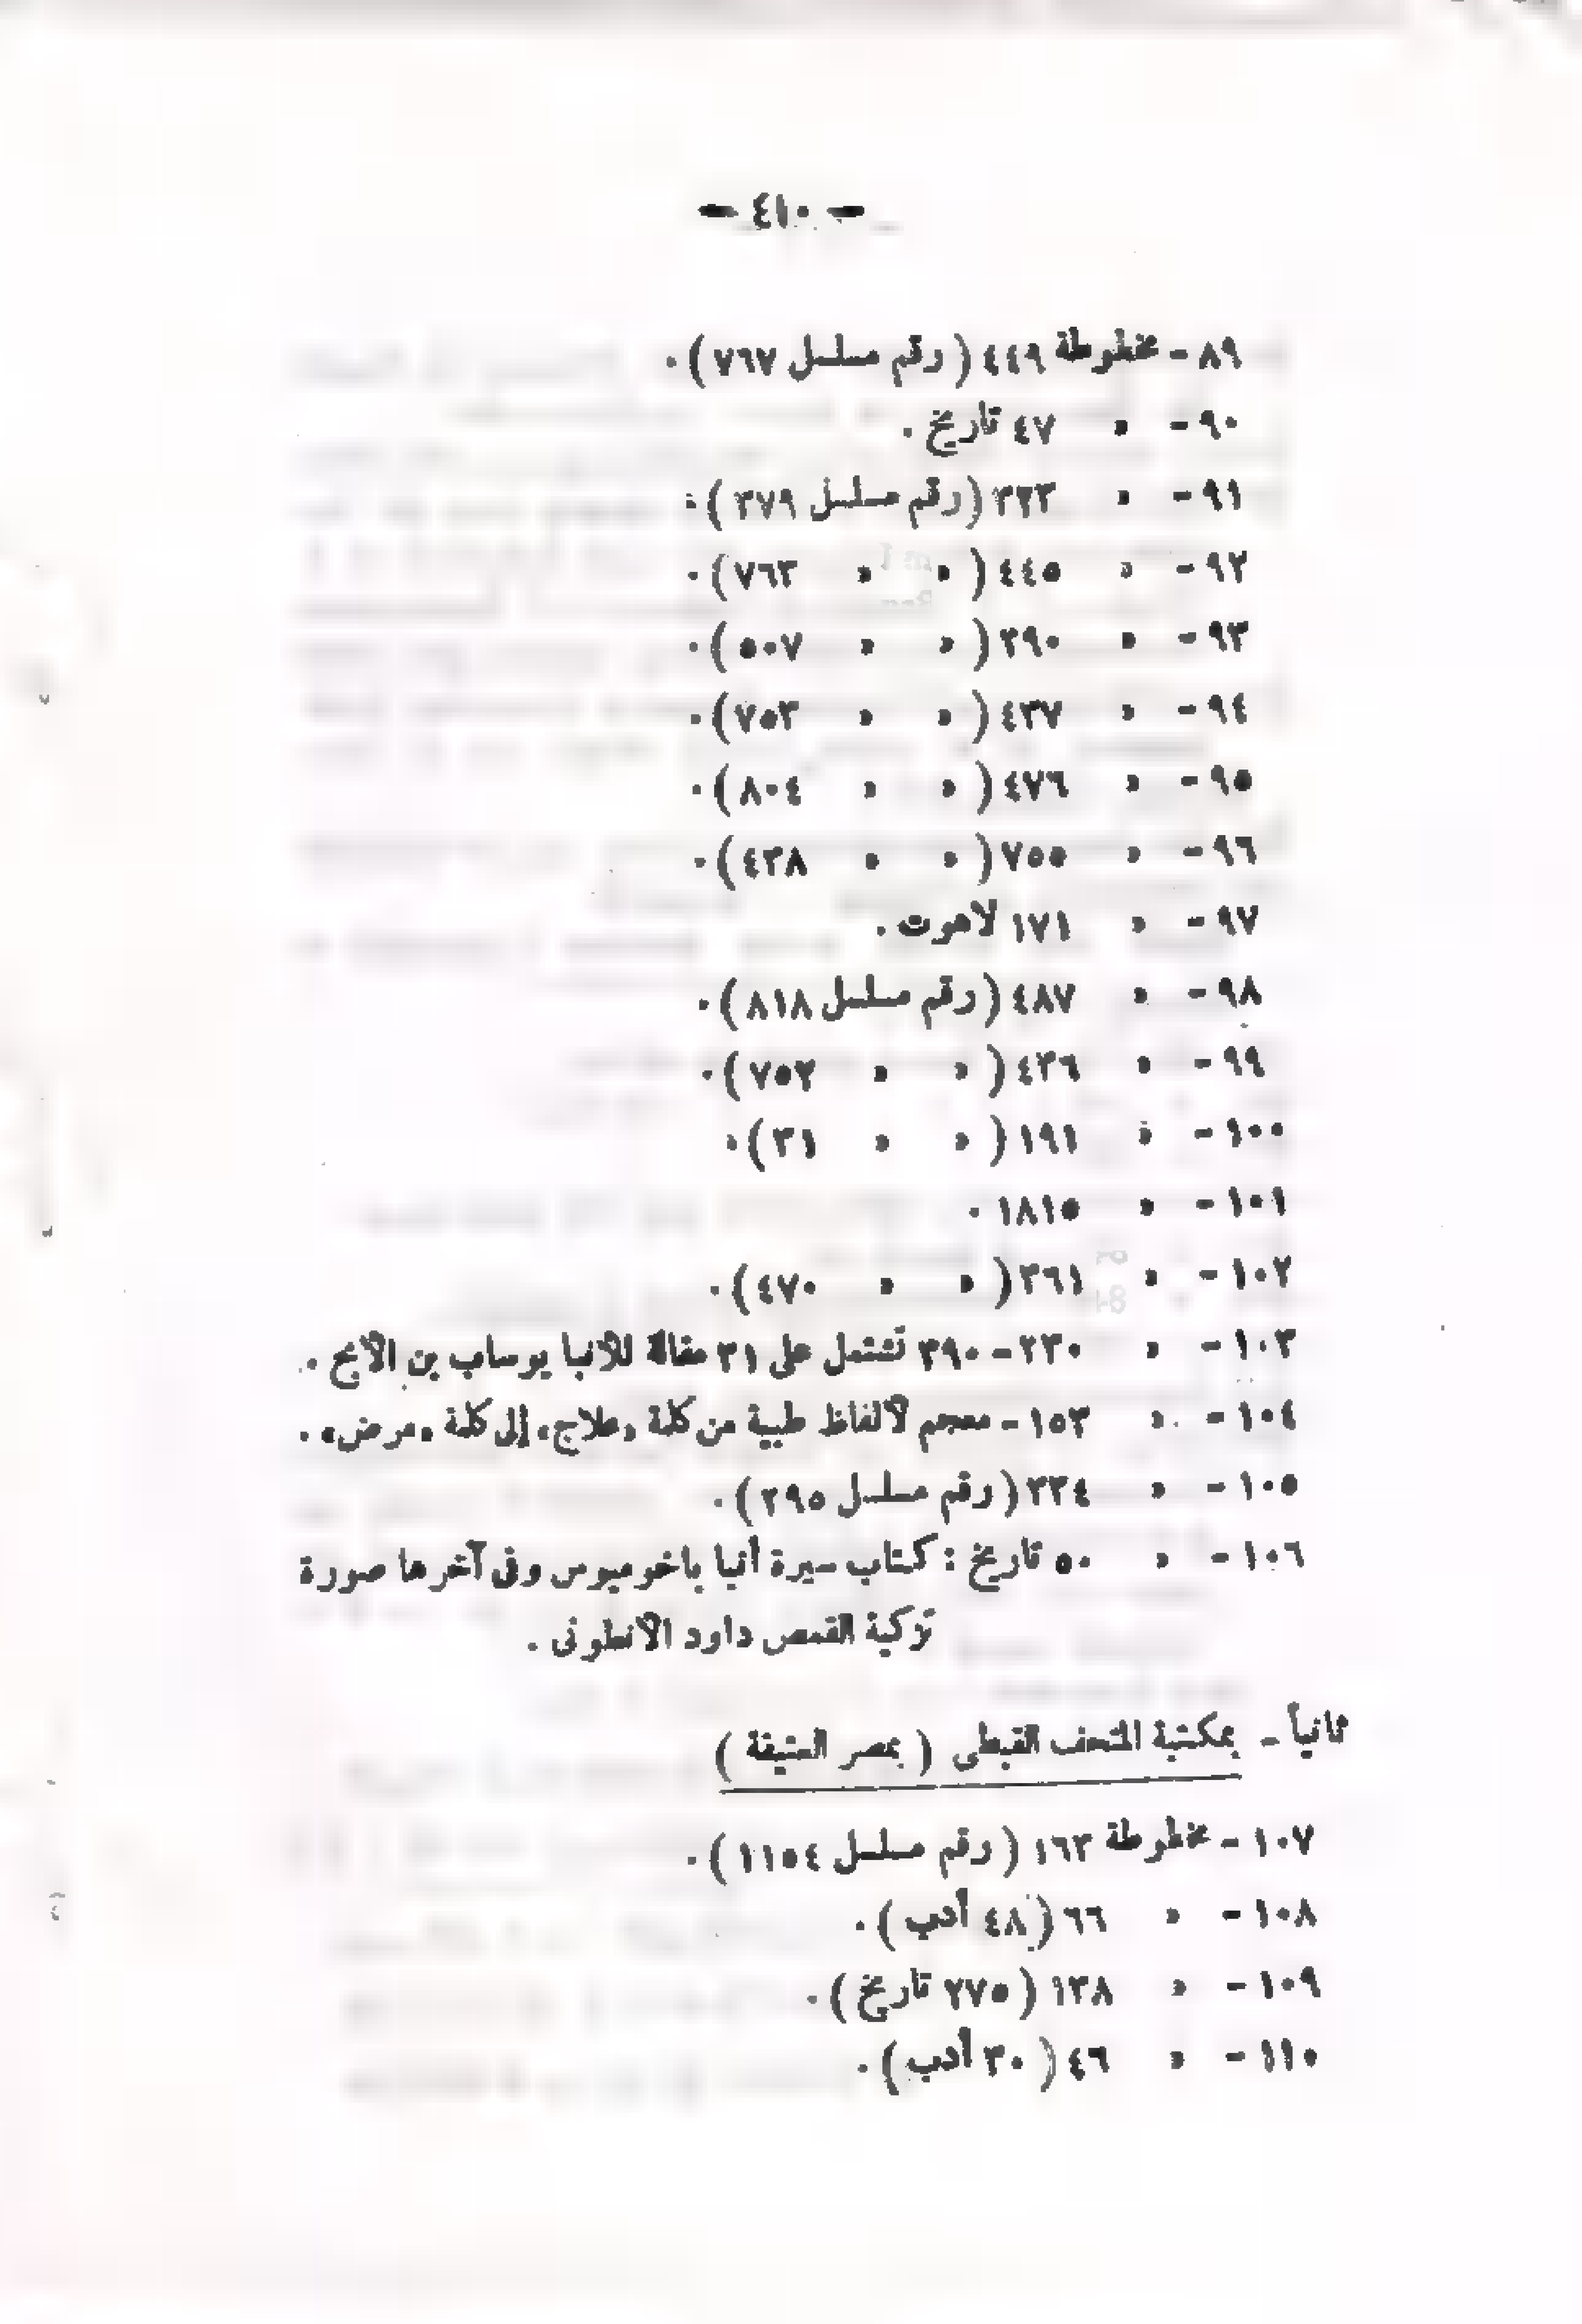 — ٤١٠ —
٨٩ - مخطوطة ٤٤٩ ( رقم مسلسل ٧٦٧ ) .
٩٠ - » ٤٧ تاريخ .
٩١ - » ٣٢٣ ( رقم مسلسل ٣٧٩ ) .
٩٢ - » ٤٤٥ ( » » ٧٦٣ ) .
٩٣ - » ٣٩٠ ( » » ٥٠٧ ) .
٩٤ - » ٤٣٧ ( » » ٧٥٣ ) .
٩٥ - » ٤٧٦ ( » » ٨٠٤ ) .
٩٦ - » ٧٥٥ ( » » ٤٣٨ ) .
٩٧ - » ١٧١ لاهوت .
٩٨ - » ٤٨٧ ( رقم مسلسل ٨١٨ ) .
٩٩ - » ٤٣٦ ( » » ٧٥٢ ) .
١٠٠ - » ١٩١ ( » » ٣١ ) .
١٠١ - » ١٨١٥ .
١٠٢ - » ٣٦١ ( » » ٤٧٠ ) .
١٠٣ - » ٢٣٠ - ٣٩٠ تشتمل على ٣١ مقالة للانبا يوساب بن الابح .
١٠٤ - » ١٥٣ - معجم لألفاظ طبية من كلمة «علاج» إلى كلمة «مرض» .
١٠٥ - » ٢٣٤ ( رقم مسلسل ٢٩٥ ) .
١٠٦ - » ٥٠ تاريخ : كتاب سيرة أنبا باخوميوس وفى آخرها صورة
تزكية القمص داود الانطونى .
ثانياً - بمكتبة المتحف القبطى ( بمصر العتيقة )
١٠٧ - مخطوطة ١٦٣ ( رقم مسلسل ١١٥٤ ) .
١٠٨ - » ٦٦ ( ٤٨ أدب ) .
١٠٩ - » ١٣٨ ( ٢٧٥ تاريخ ) .
١١٠ - » ٤٦ ( ٣٠ أدب ) .